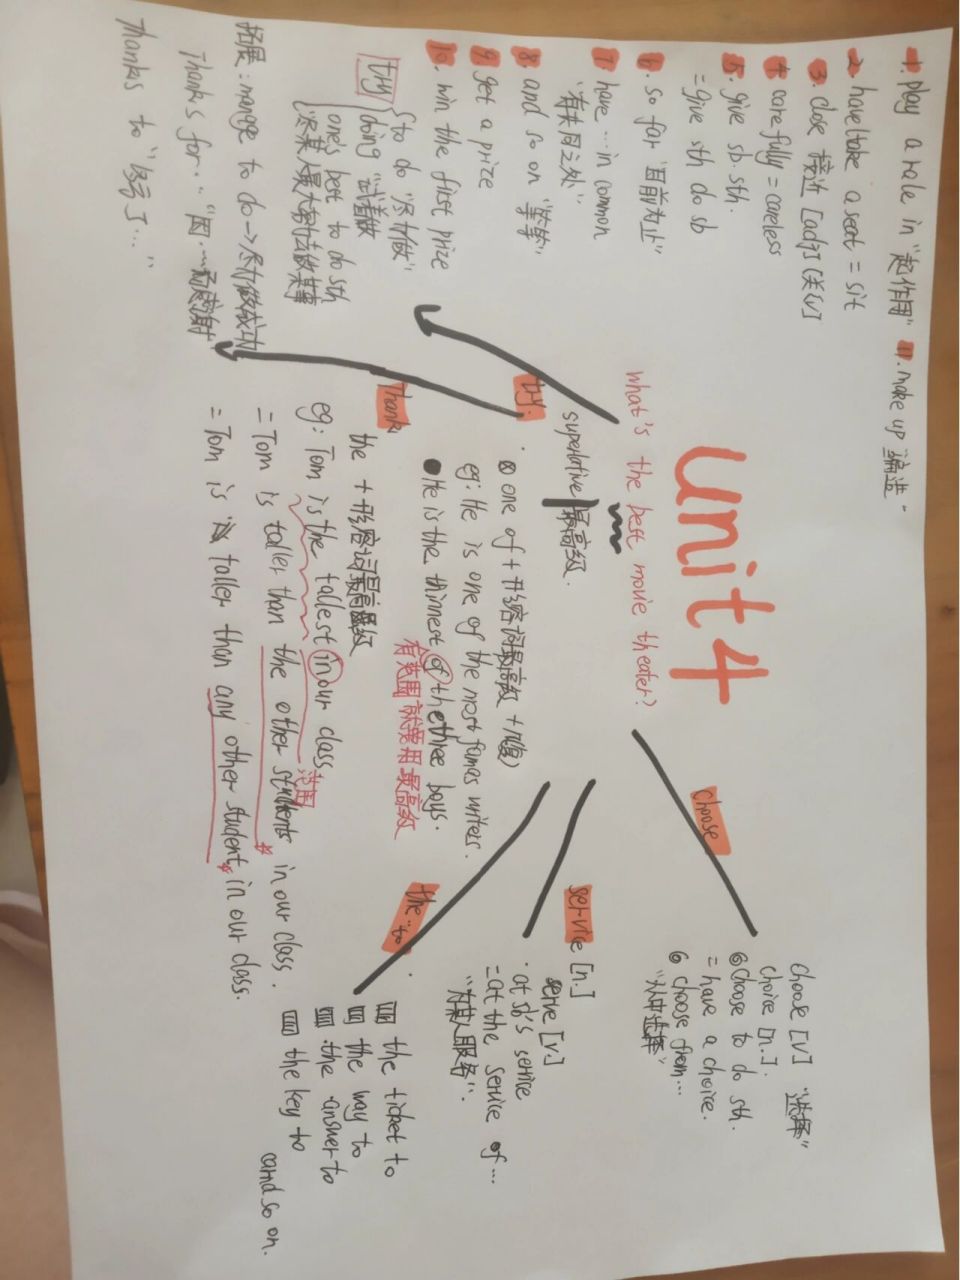 unit 4
what's the best movie theater?
superlative 最高级.
1. play a role in "起作用"
11. make up 编造"
2. have/take a seat = sit
3. close 接近 [adj] (关[v]
4. carefully = careless
5. give sb. sth.
= give sth do sb
6. so far "目前为止"
7. have ... in common
"有共同之处"
8. and so on "等等"
9. get a prize
10. win the first prize
try
to do "尽力做"
doing "试着做
one's best to do sth
尽某人最大努力去做某事
拓展: manage to do → 尽力做成功
Thanks for.. "因....而感谢"
Thanks to "多亏了..."
try.
Thank
one of + 形容词最高级 + n(复)
eg: He is one of the most fames writers.
He is the thinnest of the three boys.
有范围就要用最高级
the + 形容词最高级
eg: Tom is the tallest in our class.
范围
= Tom is taller than the other students in our class.
= Tom is taller than any other student in our class.
choose
choose [v] "选择"
choice [n.].
choose to do sth.
= have a choice.
choose from...
"从中选择"
service [n.]
serve [v.]
· at sb's service
= at the service of ...
"为某人服务".
the.. to
the ticket to
the way to
the answer to
the key to
and so on.